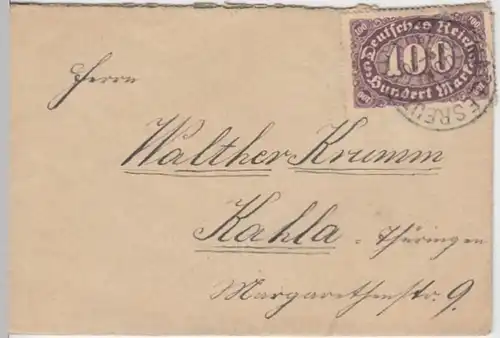 100 100
Deutsches Reich
100
Hundert Mark
100 100
Herrn
Walther Krumm
Kahla - Thüringen
Margarethenstr. 9.